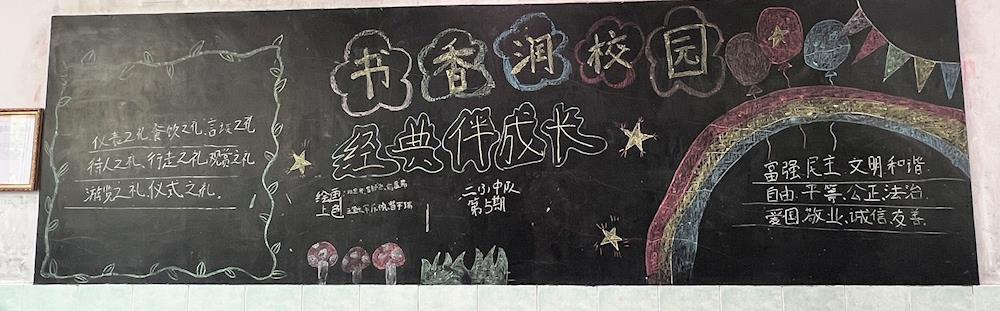 书香润校园
经典伴成长
仪表之礼餐饮之礼、言谈之礼
待人之礼、行走之礼、观赏之礼
游览之礼、仪式之礼。
绘画:
上色:
二(3)中队
第5期
富强 民主 文明 和谐
自由 平等、公正、法治
爱国 敬业、诚信 友善